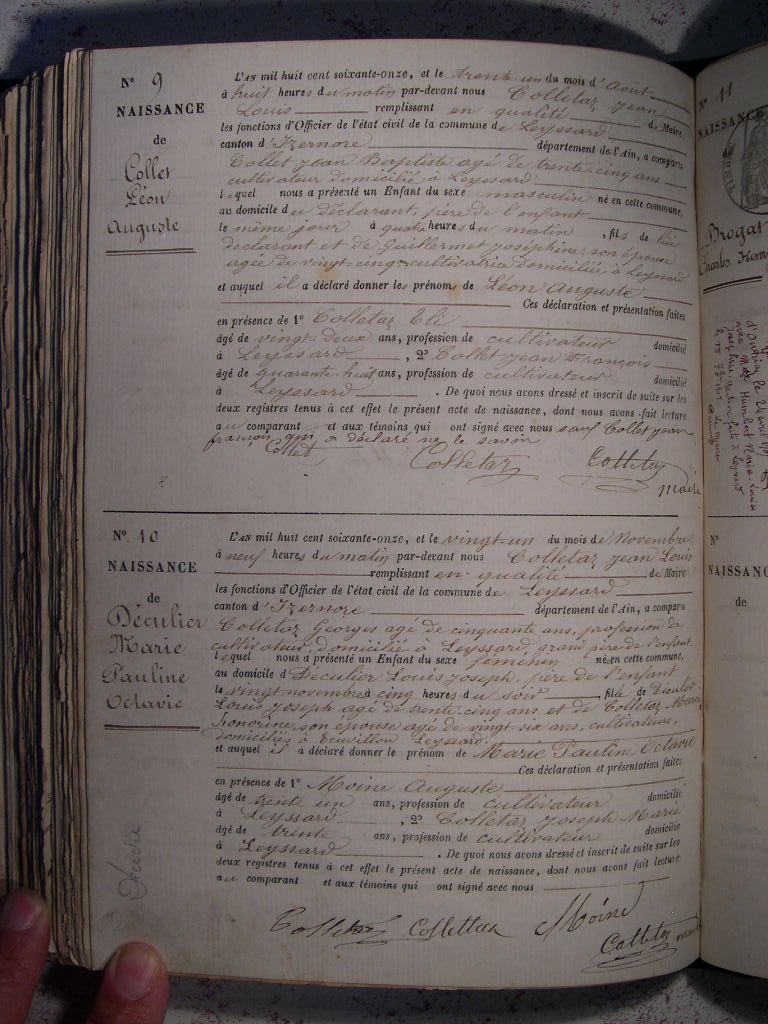 N° 9
NAISSANCE
de
Collet
Léon
Auguste
L'AN mil huit cent soixante-onze, et le trente-un du mois d'Août
à huit heures du matin par-devant nous Colletaz Jean
Louis remplissant en qualité de Maire
les fonctions d'Officier de l'état civil de la commune de Leyssard
canton d'Izernore département de l'Ain, a comparu
Collet Jean Baptiste agé de trente cinq ans
cultivateur domicilié à Leyssard
lequel nous a présenté un Enfant du sexe masculin né en cette commune,
au domicile du déclarant, père de l'enfant
le même jour à quatre heures du matin, fils de lui
declarant et de Guillermet Joséphine son épouse
agée de vingt-cinq cultivatrice domiciliée à Leyssard
et auquel il a déclaré donner les prénoms de Léon Auguste
Ces déclaration et présentation faites
en présence de 1° Colletaz Eli
âgé de vingt-deux ans, profession de cultivateur domicilié
à Leyssard, 2° Collet Jean François
âgé de quarante-huit ans, profession de cultivateur domicilié
à Leyssard. De quoi nous avons dressé et inscrit de suite sur les
deux registres tenus à cet effet le présent acte de naissance, dont nous avons fait lecture
au comparant et aux témoins qui ont signé avec nous sauf Collet Jean
françois qui a déclaré ne le savoir
Collet Colletaz Colletaz
maire
N° 10
NAISSANCE
de
Déculier
Marie
Pauline
Octavie
L'AN mil huit cent soixante-onze, et le vingt-un du mois de Novembre
à neuf heures du matin par-devant nous Colletaz Jean Louis
remplissant en qualité de Maire
les fonctions d'Officier de l'état civil de la commune de Leyssard
canton d'Izernore département de l'Ain, a comparu
Colletaz Georges agé de cinquante ans, profession de
cultivateur, domicilié à Leyssard, grand père de l'enfant
lequel nous a présenté un Enfant du sexe féminin né en cette commune,
au domicile d'Déculier Louis Joseph, père de l'enfant
le vingt novembre à cinq heures du soir, fille de Déculier
Louis Joseph agé de trente-cinq ans et de Colletaz Marie
honorine, son épouse agé de vingt-six ans, cultivateurs,
domiciliés à Leyssard.
et auquel il a déclaré donner le prénom de Marie Pauline Octavie
Ces déclaration et présentation faites
en présence de 1° Moine Auguste
âgé de trente un ans, profession de cultivateur domicilié
à Leyssard, 2° Colletaz Joseph Marie
âgé de trente ans, profession de cultivateur domicilié
à Leyssard. De quoi nous avons dressé et inscrit de suite sur les
deux registres tenus à cet effet le présent acte de naissance, dont nous avons fait lecture
au comparant et aux témoins qui ont signé avec nous
Colletaz Moine
Colletaz maire
N° 11
NAISSANCE
Brogat
Charles Henri
N°
NAISSANC
de